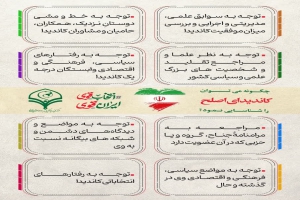 توجه به سوابق علمی،
مدیریتی و اجرایی و بررسی
میزان موفقیت کاندیدا
توجه به خط و مشی
دوستان نزدیک، همکاران،
حامیان و مشاوران کاندیدا
توجه به نظر علما و
مراجع تقلید و
شخصیت های بزرگ
علمی و سیاسی کشور
توجه به رفتارهای
سیاسی، فرهنگی و
اقتصادی وابستگان درجه
یک کاندیدا
چگونه می توان
کاندیدای اصلح
را شناسایی نمود؟
انتخاب قوی
ایران قوی
مراجعه به
مرامنامهٔ جناح، گروه و یا
حزبی که در آن عضویت دارد
توجه به مواضع و
دیدگاه‌های دشمن و
شبکه های بیگانه نسبت
به وی
توجه به مواضع سیاسی،
فرهنگی و اقتصادی وی در
گذشته و حال
توجه به رفتارهای
انتخاباتی کاندیدا